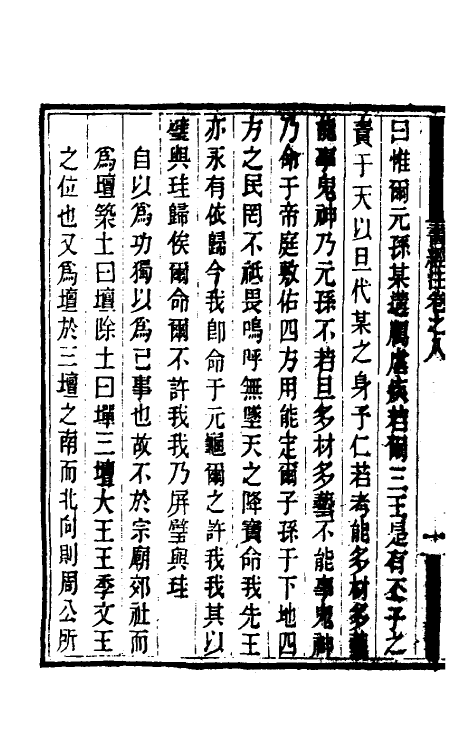 書經注卷之八
曰惟爾元孫某遘厲虐疾若爾三王是有丕子之
責于天以旦代某之身予仁若考能多材多藝
能事鬼神乃元孫不若旦多材多藝不能事鬼神
乃命于帝庭敷佑四方用能定爾子孫于下地四
方之民罔不祗畏嗚呼無墜天之降寶命我先王
亦永有依歸今我卽命于元龜爾之許我我其以
璧與珪歸俟爾命爾不許我我乃屏璧與珪
自以爲功獨以爲己事也故不於宗廟郊社而
爲壇築土曰壇除土曰墠三壇大王王季文王
之位也又爲壇於三壇之南而北向則周公所